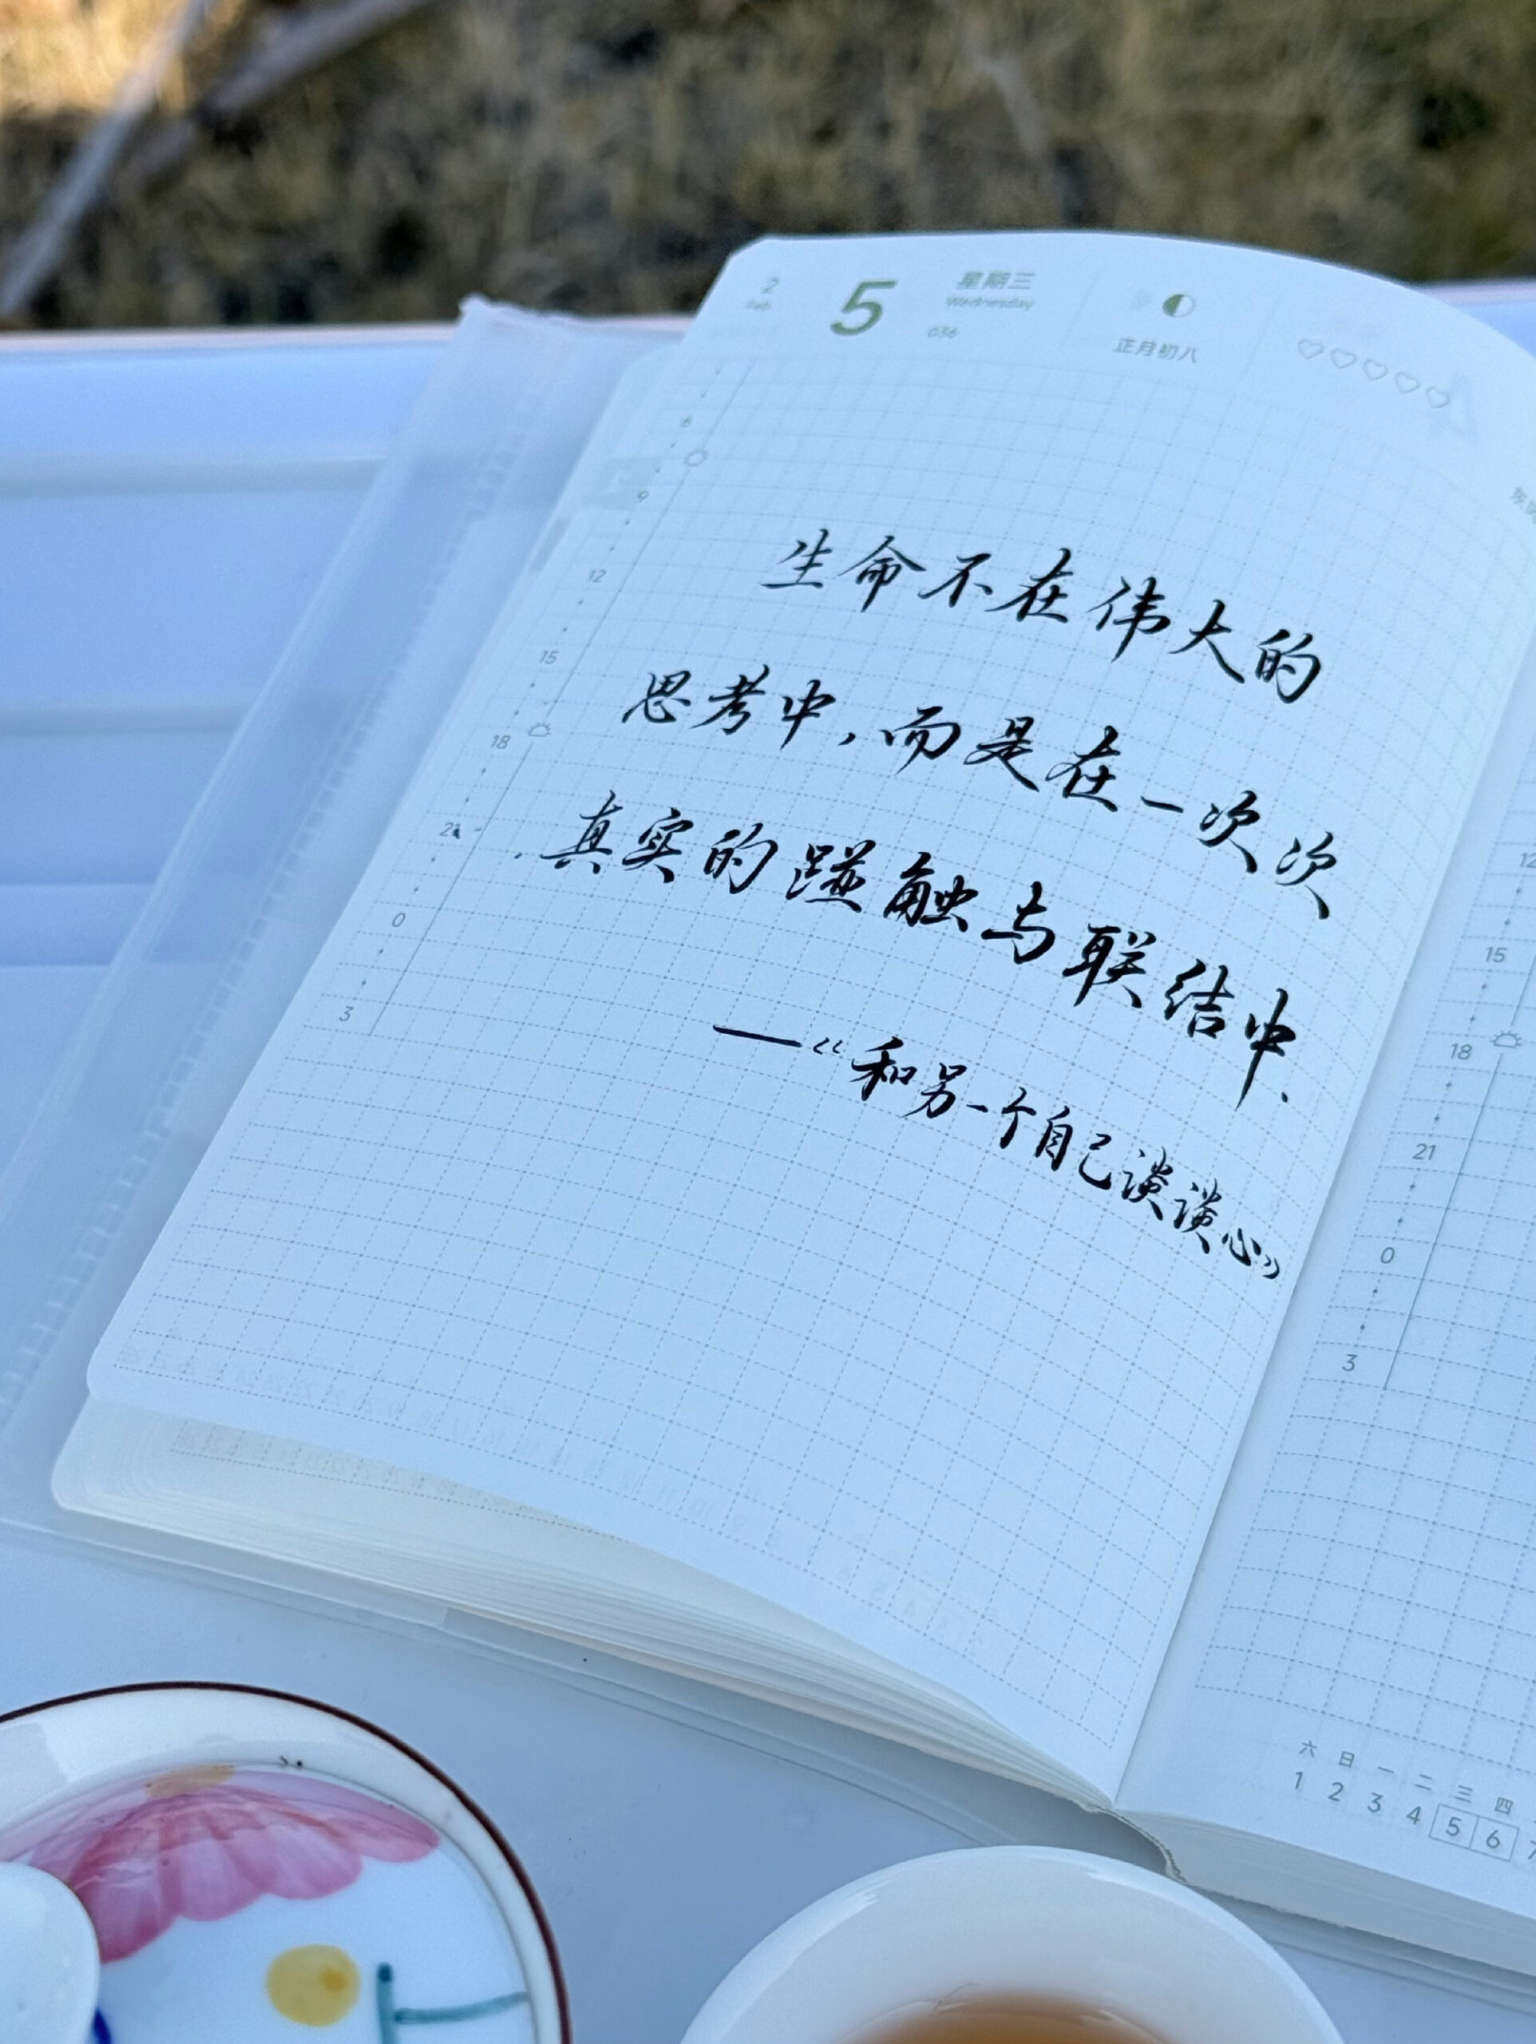 2
Feb
5
星期三
Wednesday
036
正月初八
6
9
12
15
18
21
0
3
生命不在伟大的
思考中，而是在一次次
真实的碰触与联结中.
—《和另一个自己谈谈心》
12
15
18
21
0
3
六 日 一 二 三 四
1 2 3 4 5 6 7